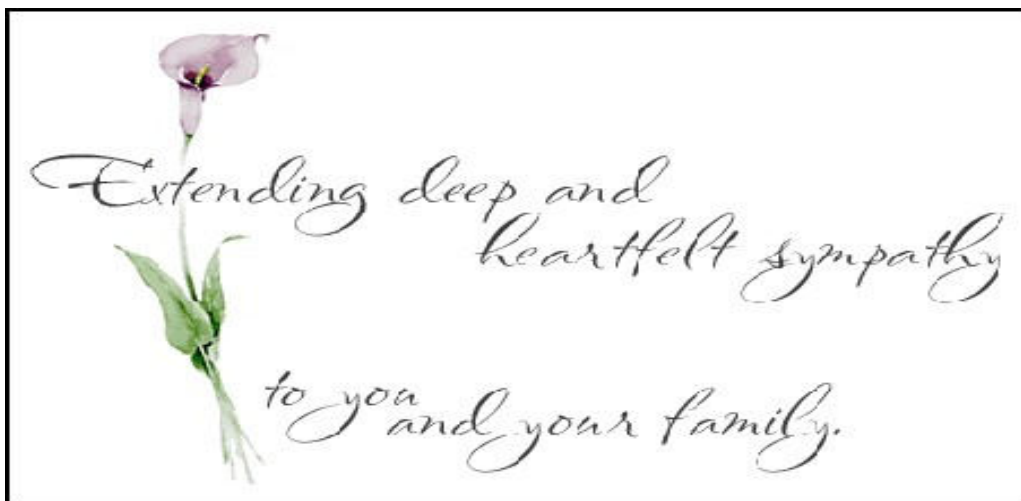 Extending deep and
heartfelt sympathy
to you
and your family.